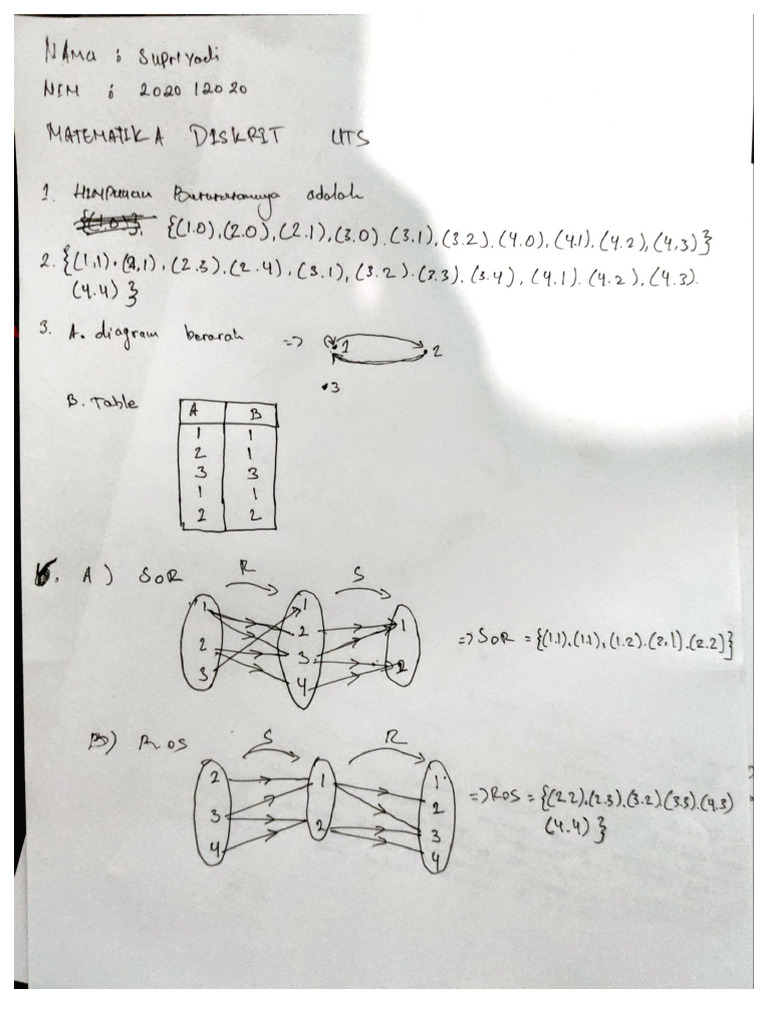 NAma : Supriyadi
NIM : 2020 12020
MATEMATIKA DISKRIT UTS
1. HIMPunan adalah
{(1.0),(2.0),(2.1),(3.0).(3.1),(3.2).(4.0),(4.1).(4.2),(4.3)}
2. {(1,1).(2,1).(2.3).(2.4).(3.1),(3.2).(3.3).(3.4),(4.1).(4.2),(4.3).
(4.4)}
3. A. diagram berarah => 1 2
3
B. Table
A B
1 1
2 1
3 3
1 1
2 2
6. A) SOR R S
1 2 3
1 2 3 4
1 2
=> SOR = {(1.1).(1.1),(1.2).(2,1).(2.2)}
B) ROS S R
2 3 4
1 2
1 2 3 4
=> ROS = {(2.2),(2.3).(3.2)(3.3).(4.3)
(4.4)}